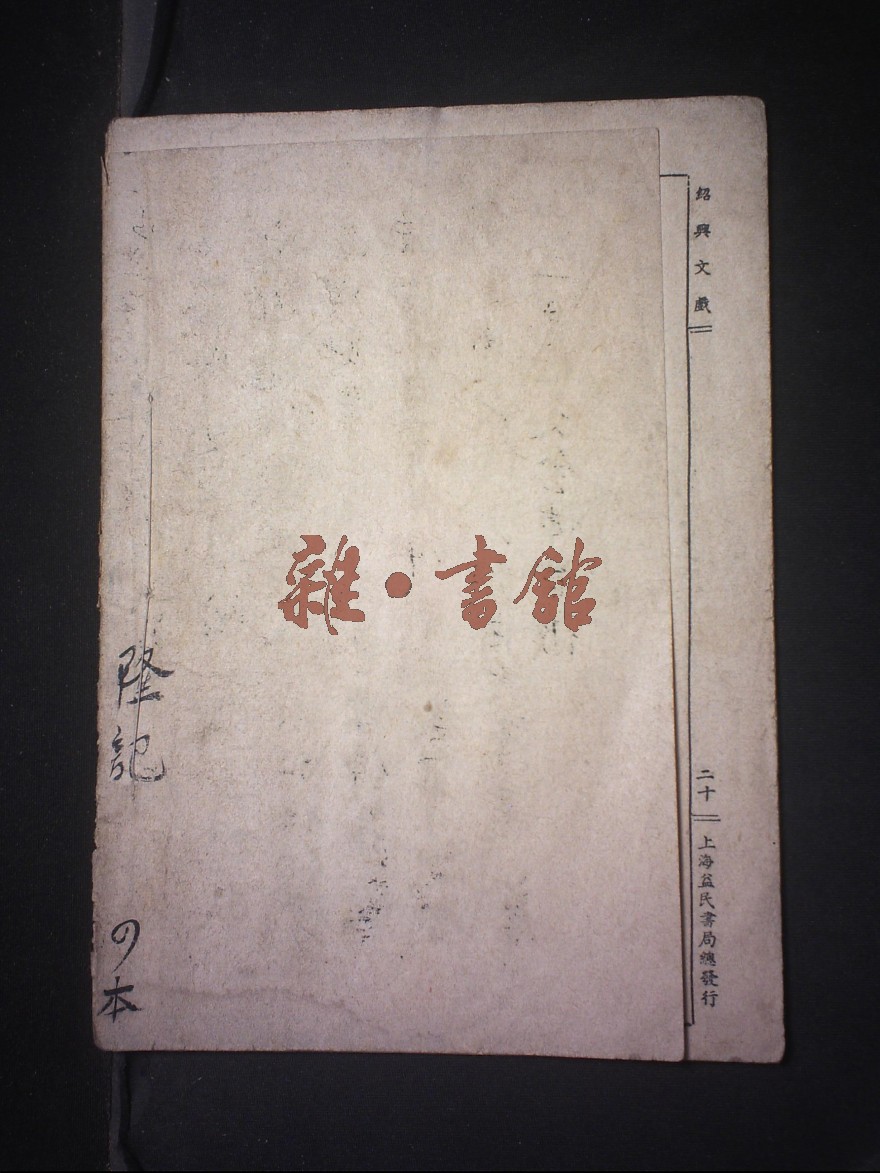 紹興文戲
二十
上海益民書局總發行
雜·書館
隆記
の本